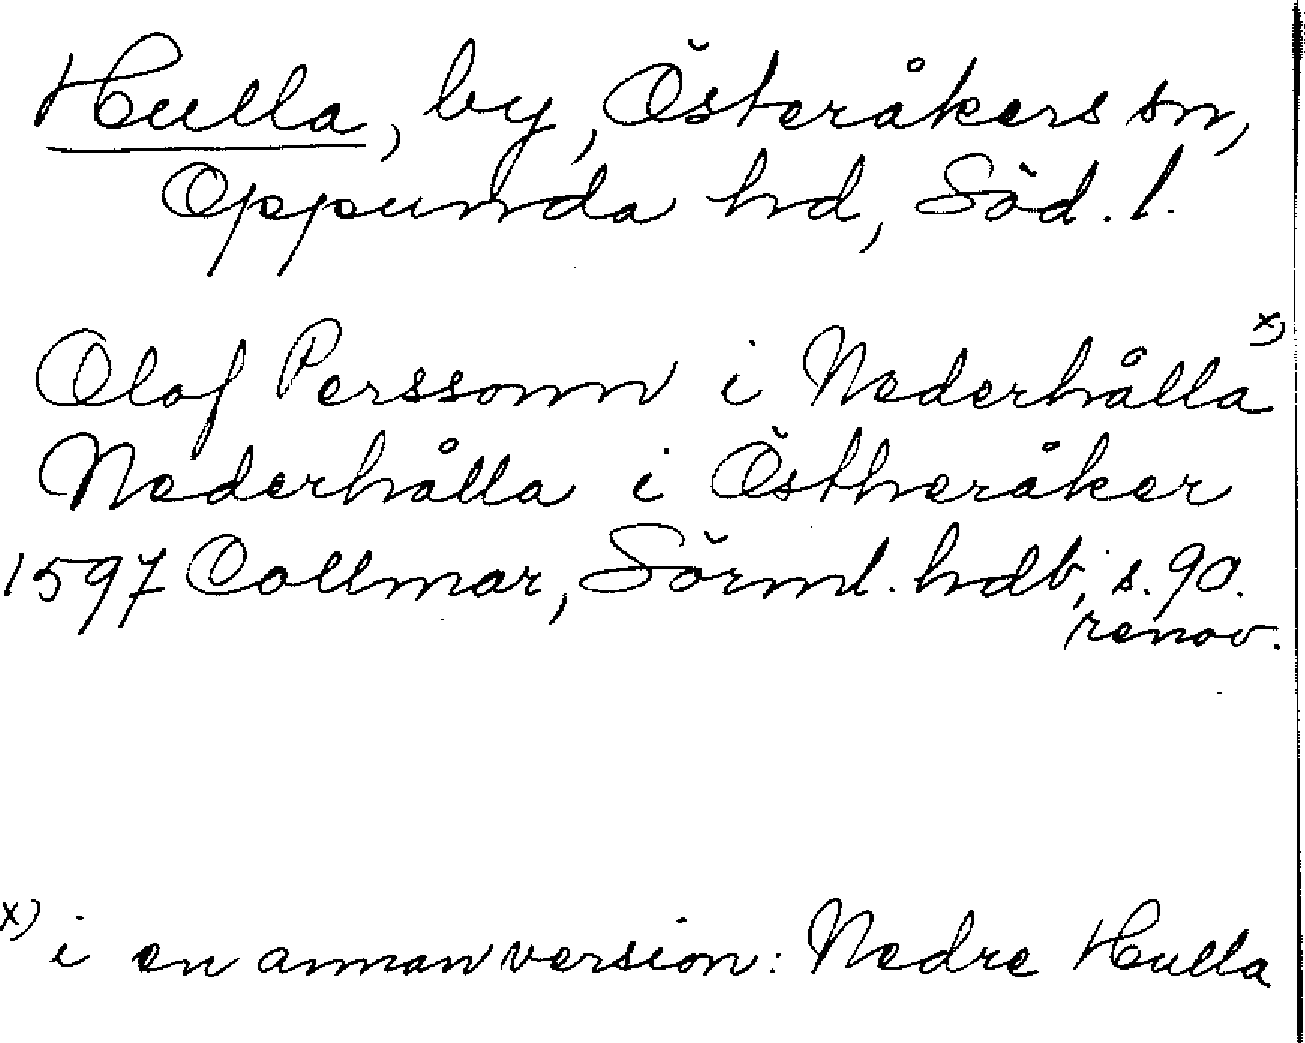 Hulla, by, Österåkers sn,
Oppunda hd, Söd. l.
Olof Perssonn i Nederhålla x)
Nederhålla i Östheråker
1597 Collmar, Sörml. hdb, s. 90.
renov.
x) i en annan version: Nedre Hulla